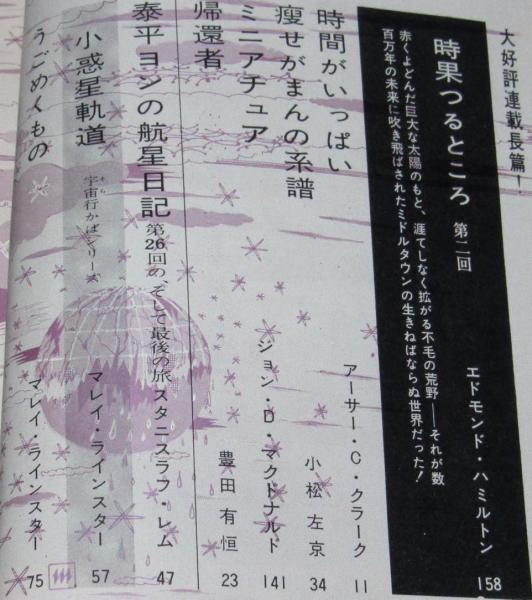 大好評連載長篇！
時果つるところ 第二回
赤くよどんだ巨大な太陽のもと、涯てしなく拡がる不毛の荒野――それが数
百万年の未来に吹き飛ばされたミドルタウンの生きねばならぬ世界だった！
エドモンド・ハミルトン 158
時間がいっぱい アーサー・C・クラーク 11
痩せがまんの系譜 小松左京 34
ミニアチュア ジョン・D・マクドナルド 141
帰還者 豊田有恒 23
泰平ヨンの航星日記 第26回の、そして最後の旅 スタニスラフ・レム 47
小惑星軌道 宇宙行かばシリーズ マレイ・ラインスター 57
うごめくもの マレイ・ラインスター 75